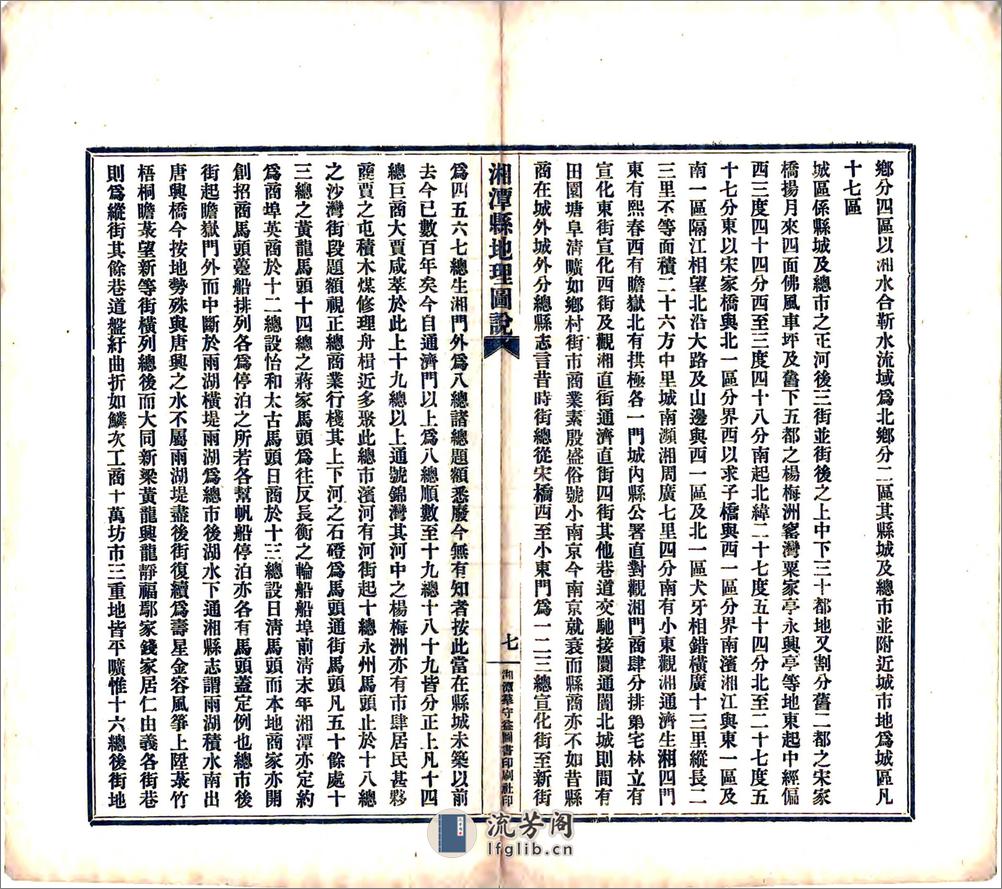 鄉分四區以湘水合靳水流域為北鄉分二區其縣城及總市並附近城市地為城區凡
十七區
城區係縣城及總市之正河後三街並街後之上中下三十都地又割分舊二都之宋家
橋揚月來四面佛風車坪及舊下五都之楊梅洲窰灣粟家亭永興亭等地東起中經偏
西三度四十四分西至三度四十八分南起北緯二十七度五十四分北至二十七度五
十七分東以宋家橋與北一區分界西以求子橋與西一區分界南濱湘江與東一區及
南一區隔江相望北沿大路及山邊與西一區及北一區犬牙相錯橫廣十三里縱長二
三里不等面積二十六方中里城南瀕湘周廣七里四分南有小東觀湘通濟生湘四門
東有熙春西有瞻嶽北有拱極各一門城內縣公署直對觀湘門商肆分排第宅林立有
宣化東街宣化西街及觀湘直街通濟直街四街其他巷道交馳接闠通闤北城則間有
田園塘阜清曠如鄉村街市商業素殷盛俗號小南京今南京就衰而縣商亦不如昔縣
商在城外城外分總縣志言昔時街總從宋橋西至小東門為一二三總宣化街至新街
湘潭縣地理圖說
七
湘潭華守益圖書印刷社印
為四五六七總生湘門外為八總諸總題額悉廢今無有知者按此當在縣城未築以前
去今已數百年矣今自通濟門以上為八總順數至十九總十八十九皆分正上凡十四
總巨商大賈咸萃於此上十九總以上通號錦灣其河中之楊梅洲亦有市肆居民甚夥
商賈之屯積木煤修理舟楫近多聚此總市濱河有河街起十總永州馬頭止於十八總
之沙灣街段題額視正總商業行棧其上下河之石磴為馬頭通街馬頭凡五十餘處十
三總之黃龍馬頭十四總之蔣家馬頭為往反長衡之輪船船埠前清末年湘潭亦定約
為商埠英商於十二總設怡和太古馬頭日商於十三總設日清馬頭而本地商家亦開
創招商馬頭躉船排列各為停泊之所若各幫帆船停泊亦各有馬頭蓋定例也總市後
街起瞻嶽門外而中斷於兩湖橫堤兩湖為總市後湖水下通湘縣志謂兩湖積水南出
唐興橋今按地勢殊與唐興之水不屬兩湖堤盡後街復續為壽星金容風箏上陞菉竹
梧桐瞻菉望新等街橫列總後而大同新梁黃龍興龍靜福鄢家錢家居仁由義各街巷
則為縱街其餘巷道盤紆曲折如鱗次工商十萬坊市三重地皆平曠惟十六總後街地
流芳阁
lfglib.cn